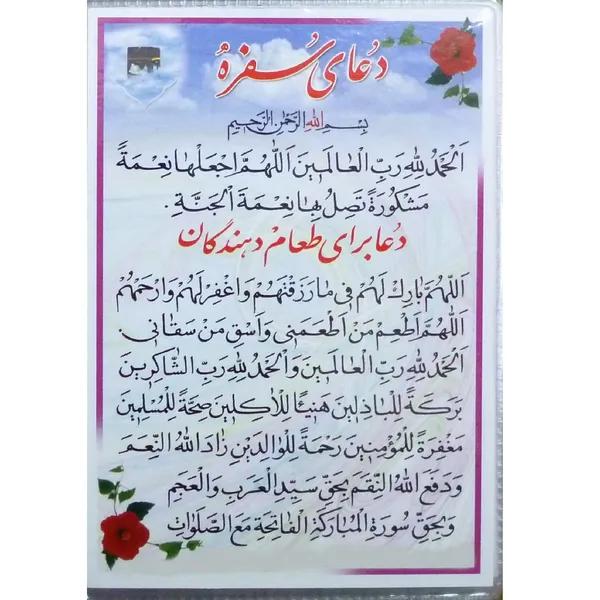 دُعای سُفرَهُ
بِسْمِ اللهِ الرَّحْمٰنِ الرَّحیِمِ
اَلْحَمْدُ لِلّٰهِ رَبِّ الْعٰالَمینَ اَللّٰهُمَّ اجْعَلْهٰا نِعْمَةً
مَشْکُورَةً تَصِلُ بِهٰا نِعْمَةَ الْجَنَّةِ .
دُعا برای طعام دهندگان
اَللّٰهُمَّ بٰارِكْ لَهُمْ فی مٰا رَزَقْتَهُمْ وَ اغْفِرْ لَهُمْ وَارْحَمْهُمْ
اَللّٰهُمَّ اَطْعِمْ مَنْ اَطْعَمَنی وَاَسْقِ مَنْ سَقٰانی .
اَلْحَمْدُ لِلّٰهِ رَبِّ الْعٰالَمینَ وَالْحَمْدُ لِلّٰهِ رَبِّ الشّٰاکِرینَ
بَرَکَةً لِلْبٰاذِلینَ هَنیٓئًا لِلْاٰکِلینَ صِحَّةً لِلْمُسْلِمینَ
مَغْفِرَةً لِلْمُؤْمِنینَ رَحْمَةً لِلْوٰالِدَیْنِ زٰادَ اللهُ النِّعَمَ
وَ دَفَعَ اللهُ النِّقَمَ بِحَقِّ سَیِّدِ الْعَرَبِ وَ الْعَجَمِ
وَ بِحَقِّ سُورَةِ الْمُبٰارَکَةِ الْفٰاتِحَةِ مَعَ الصَّلَوٰاتِ